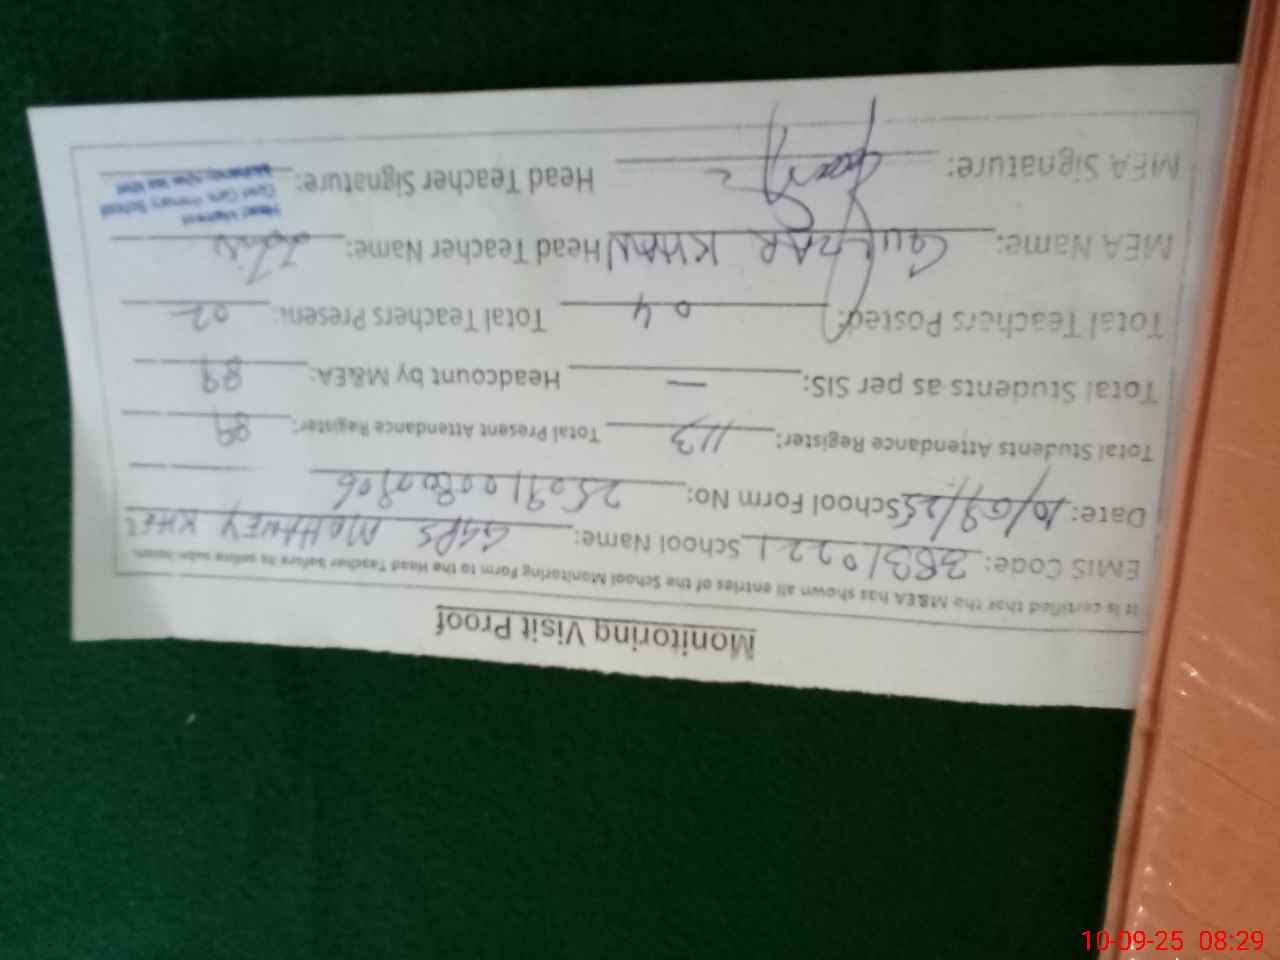 Monitoring Visit Proof
It is certified that the M&EA has shown all entries of the School Monitoring Form to the Head Teacher before its online submission.
EMIS Code: 38310221 School Name: GGPS MOHANEY KHEL
Date: 10/09/25 School Form No: 250910080906
Total Students Attendance Register: 113 Total Present Attendant Register: 89
Total Students as per SIS: — Headcount by M&EA: 89
Total Teachers Posted: 04 Total Teachers Present: 02
MEA Name: GULZAR KHAN Head Teacher Name:
MEA Signature: Head Teacher Signature:
Head Mistress
Govt Girls Primary School
10-09-25 08:29